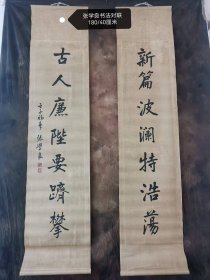 张学良书法对联
180/40厘米
新篇波澜特浩荡
古人廉陛要跻攀